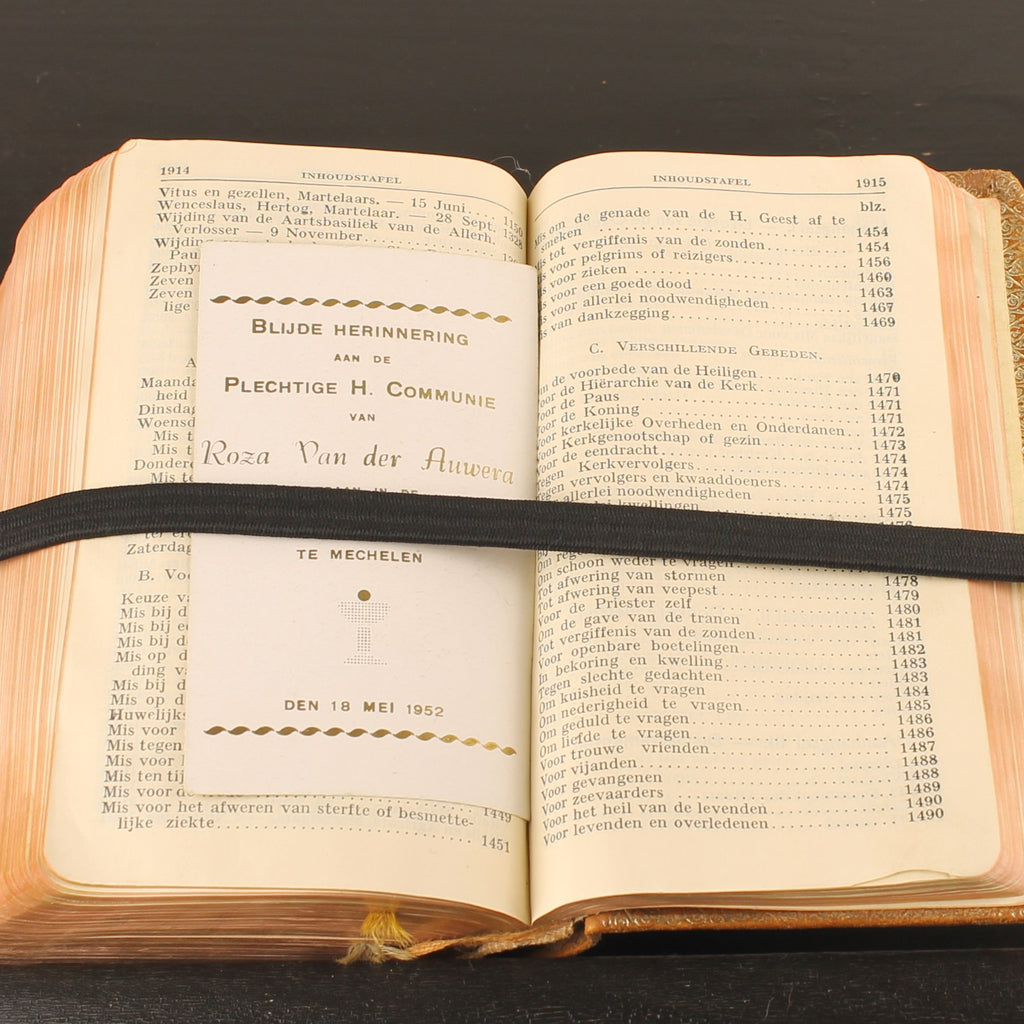 1914
INHOUDSTAFEL
Vitus en gezellen, Martelaars. — 15 Juni....
Wenceslaus, Hertog, Martelaar. — 28 Sept.
Wijding van de Aartsbasiliek van de Allerh.
Verlosser — 9 November
Zeven
Zeven
lige
Maanda
heid
Dinsdag
Woensd
Mis t
Mis t
Mis te
Zaterdag
B. Vo
Keuze v
Mis bij d
Mis bij e
Mis bij d
Mis op d
ding v
Mis bij d
Mis op d
Huwelijks
Mis voor
Mis tegen
Mis voor
Mis ten tij
Mis voor d
Mis voor het afweren van sterfte of besmette-
1449
lijke ziekte
1451
BLIJDE HERINNERING
AAN DE
PLECHTIGE H. COMMUNIE
VAN
Roza Van der Auwera
TE MECHELEN
DEN 18 MEI 1952
INHOUDSTAFEL
1915
blz.
Mis om de genade van de H. Geest af te
smeken 1454
Mis tot vergiffenis van de zonden 1454
Mis voor pelgrims of reizigers 1456
Mis voor zieken 1460
Mis voor een goede dood 1463
Mis voor allerlei noodwendigheden 1467
Mis van dankzegging 1469
C. VERSCHILLENDE GEBEDEN.
Om de voorbede van de Heiligen 1470
Voor de Hiërarchie van de Kerk 1471
Voor de Paus 1471
Voor de Koning 1471
Voor kerkelijke Overheden en Onderdanen 1472
Voor Kerkgenootschap of gezin 1473
Voor de eendracht 1474
Tegen Kerkvervolgers 1474
Tegen vervolgers en kwaaddoeners 1474
allerlei noodwendigheden 1475
kwellingen 1475
Om schoon weder te vragen
Tot afwering van stormen 1478
Tot afwering van veepest 1479
Voor de Priester zelf 1480
Om de gave van de tranen 1481
Tot vergiffenis van de zonden 1481
Voor openbare boetelingen 1482
In bekoring en kwelling 1483
Tegen slechte gedachten 1483
Om kuisheid te vragen 1484
Om nederigheid te vragen 1485
Om geduld te vragen 1486
Om liefde te vragen 1486
Voor trouwe vrienden 1487
Voor vijanden 1488
Voor gevangenen 1488
Voor zeevaarders 1489
Voor het heil van de levenden 1490
Voor levenden en overledenen 1490